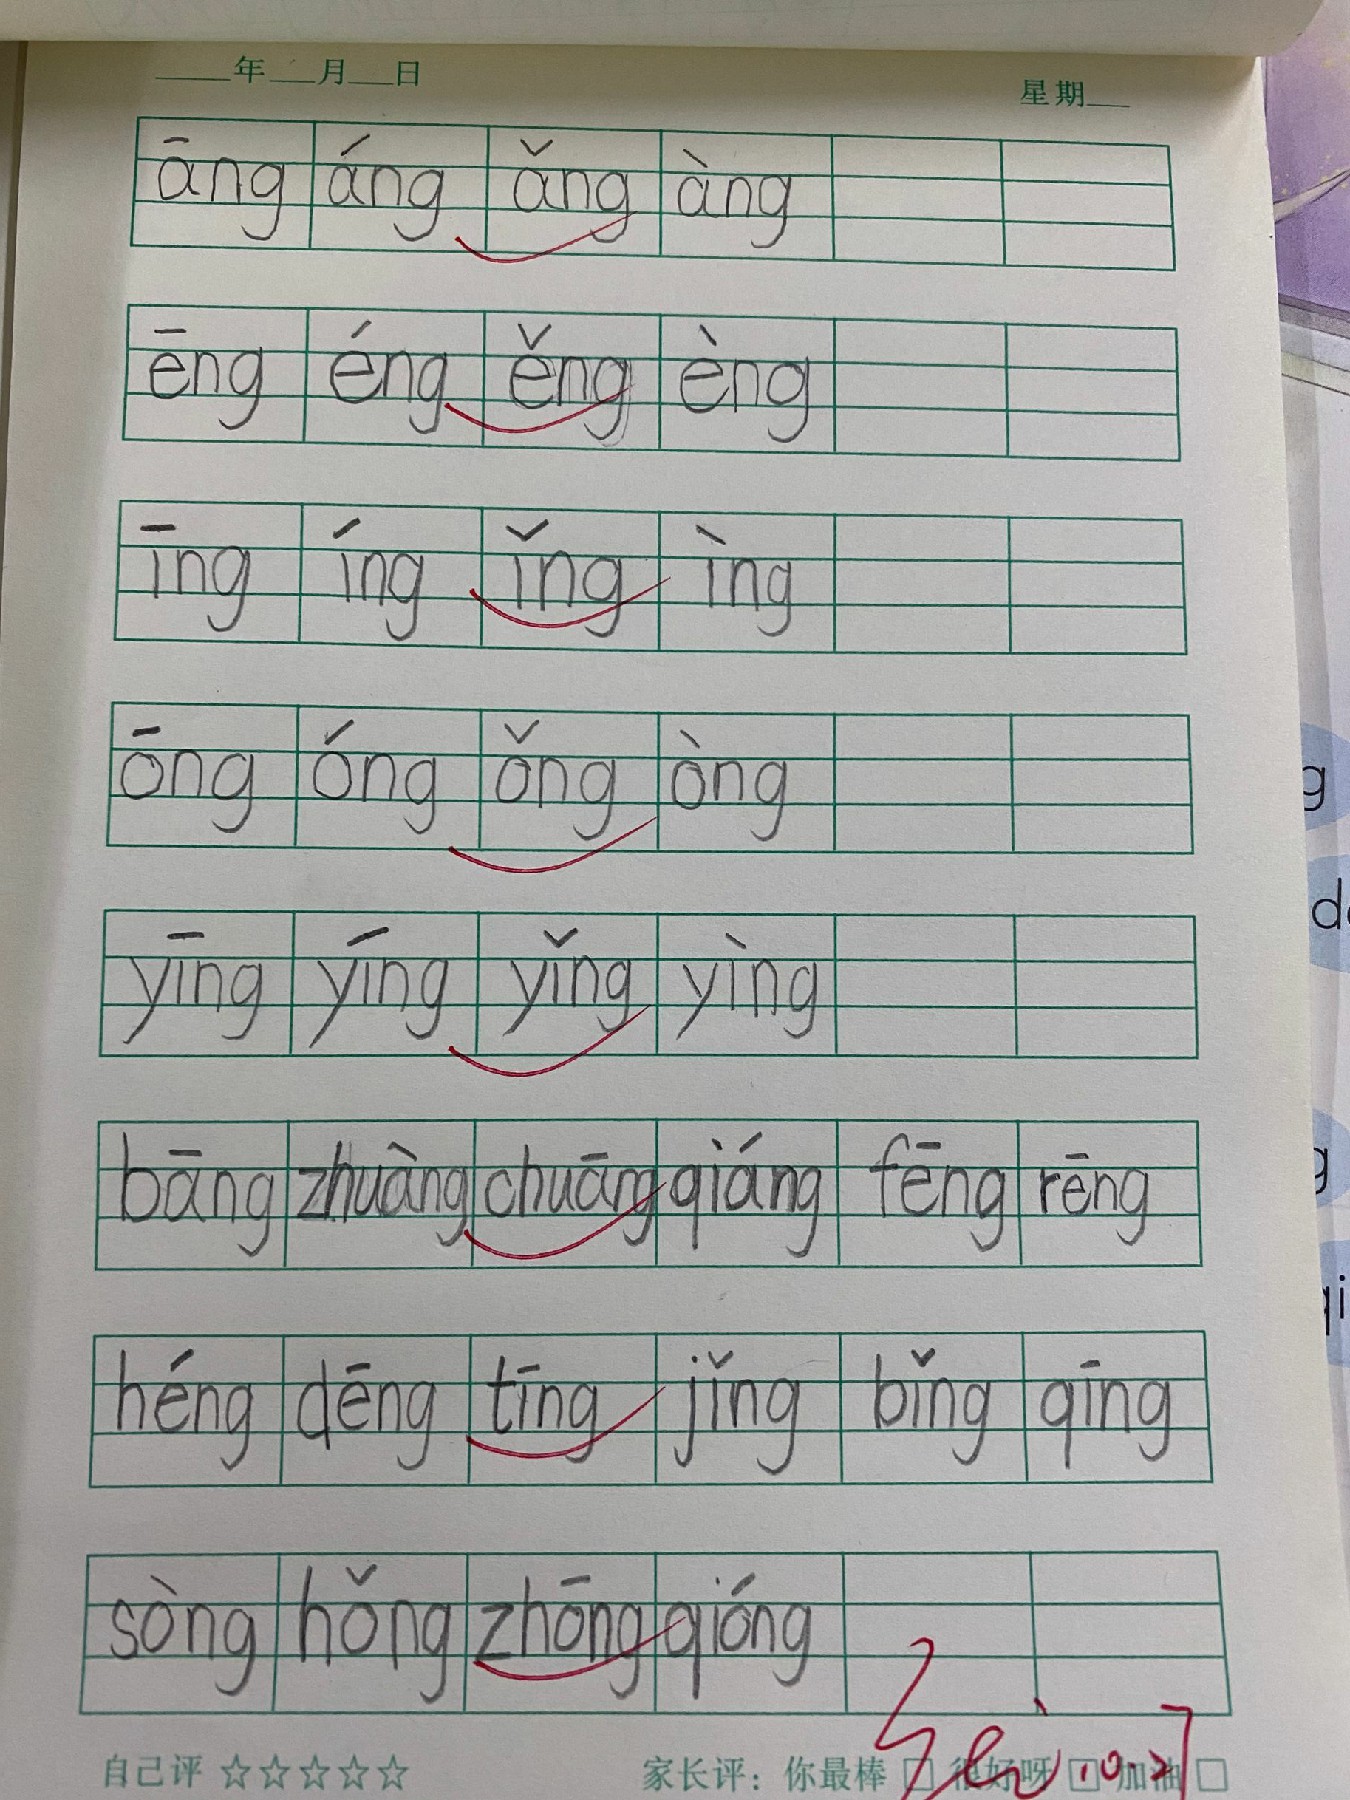 年 月 日 星期
āng áng ǎng àng
ēng éng ěng èng
īng íng ǐng ìng
ōng óng ǒng òng
yīng yíng yǐng yìng
bāng zhuàng chuāng qiáng fēng rēng
héng dēng tīng jǐng bǐng qīng
sòng hǒng zhōng qióng
自己评 ☆☆☆☆☆ 家长评：你最棒 □ 很好呀 □ 加油 □
g
g
qi